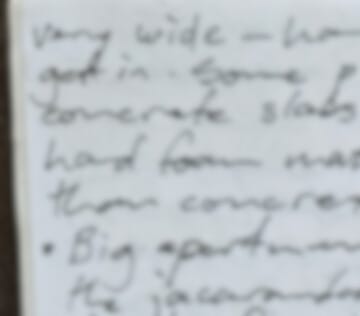 very wide – ha
get in. Some p
concrete slabs
hard foam mat
than concre
• Big apartmen
the jacaranda